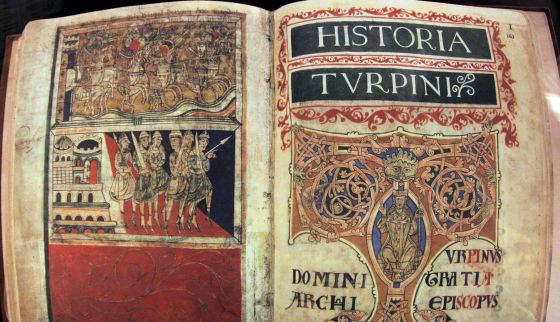 HISTORIA
TVRPINI
TVRPINVS
DOMINI GRATIA
ARCHI EPISCOPVS